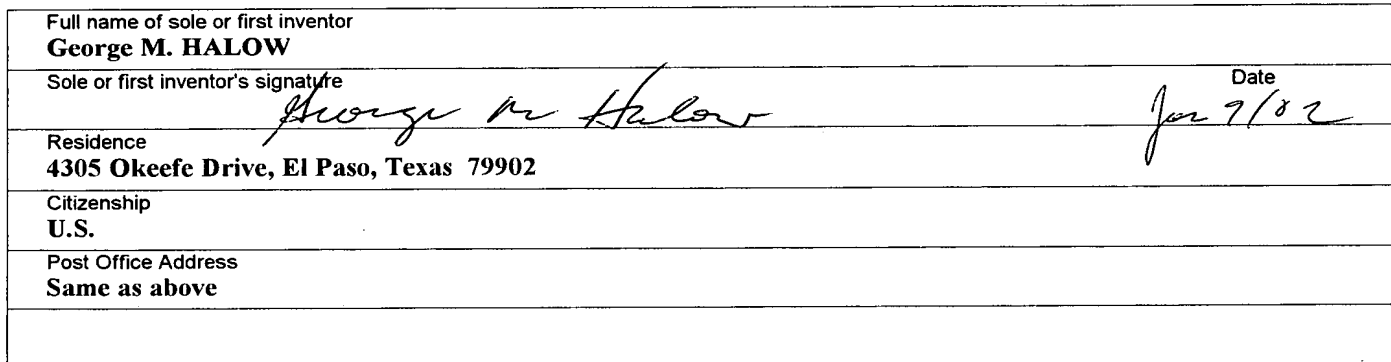 Full name of sole or first inventor
George M. HALOW
Sole or first inventor's signature
Date
George M Halow
Jan 9/02
Residence
4305 Okeefe Drive, El Paso, Texas 79902
Citizenship
U.S.
Post Office Address
Same as above